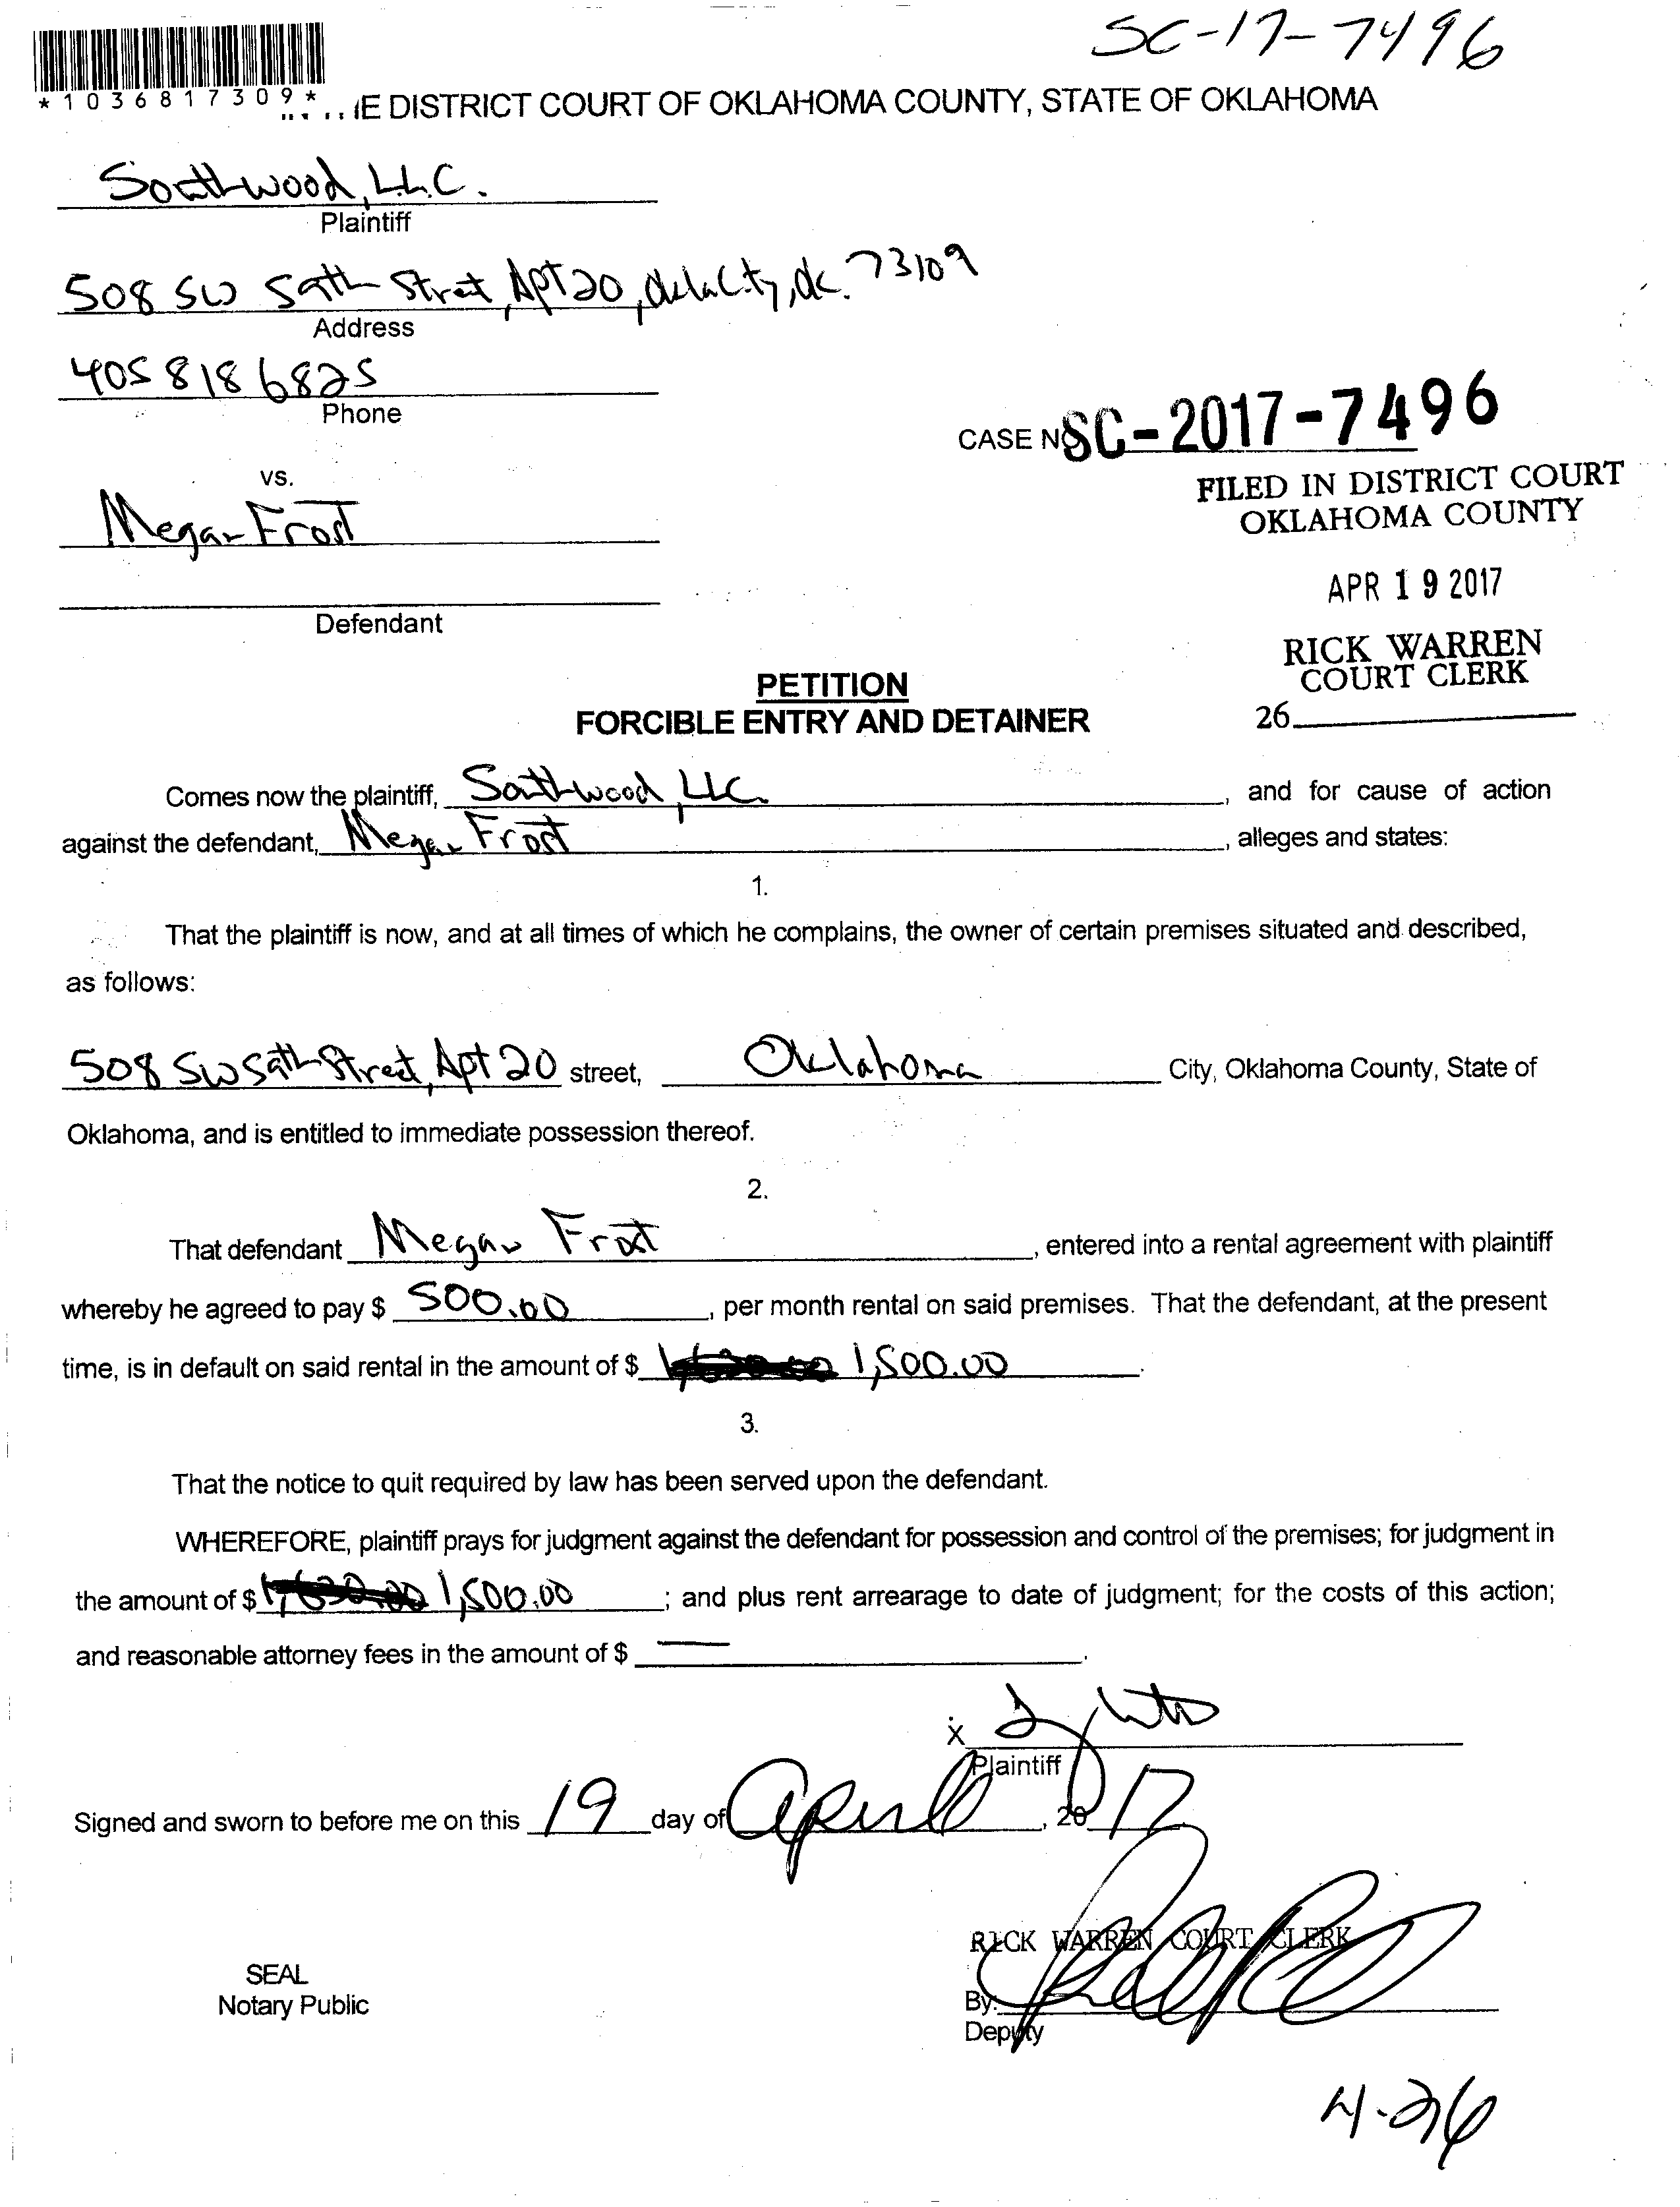 SC-17-7496
*1036817309*
IE DISTRICT COURT OF OKLAHOMA COUNTY, STATE OF OKLAHOMA
Southwood, L.L.C.
Plaintiff
508 SW 59th Street, Apt 20, Okla City, Ok. 73109
Address
405 818 6825
Phone
CASE NO SC-2017-7496
FILED IN DISTRICT COURT
OKLAHOMA COUNTY
vs.
Megan Frost
APR 19 2017
Defendant
RICK WARREN
COURT CLERK
26
PETITION
FORCIBLE ENTRY AND DETAINER
Comes now the plaintiff, Southwood, LLC. , and for cause of action
against the defendant, Megan Frost , alleges and states:
1.
That the plaintiff is now, and at all times of which he complains, the owner of certain premises situated and described,
as follows:
508 SW 59th Street, Apt 20 street, Oklahoma City, Oklahoma County, State of
Oklahoma, and is entitled to immediate possession thereof.
2.
That defendant Megan Frost , entered into a rental agreement with plaintiff
whereby he agreed to pay $ 500.00 , per month rental on said premises. That the defendant, at the present
time, is in default on said rental in the amount of $ 1,500.00 .
3.
That the notice to quit required by law has been served upon the defendant.
WHEREFORE, plaintiff prays for judgment against the defendant for possession and control of the premises; for judgment in
the amount of $ 1,500.00 ; and plus rent arrearage to date of judgment; for the costs of this action;
and reasonable attorney fees in the amount of $ — .
X
Plaintiff
Signed and sworn to before me on this 19 day of April , 2017
RICK WARREN COURT CLERK
SEAL
Notary Public
By:
Deputy
4-26